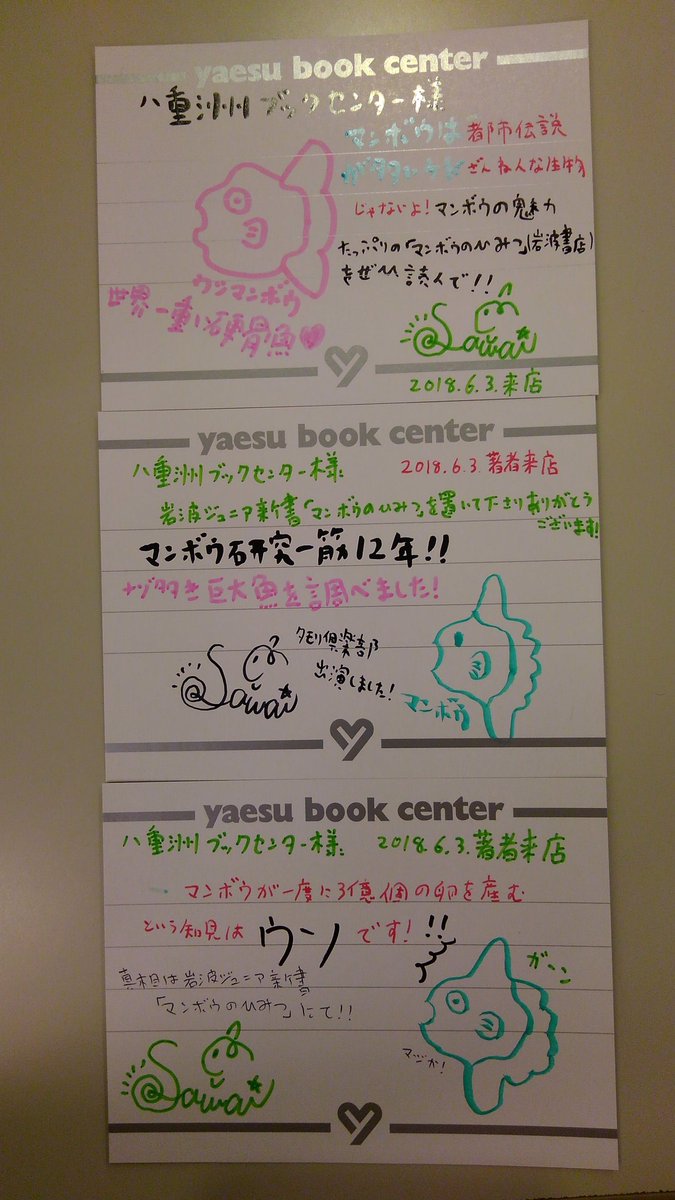 yaesu book center
八重洲ブックセンター様
マンボウは都市伝説
ざんねんな生物
じゃないよ！マンボウの魅力
たっぷりの「マンボウのひみつ」(岩波書店)
をぜひ読んで！！
ウシマンボウ
世界一重い硬骨魚
Sawai
2018.6.3.来店
yaesu book center
八重洲ブックセンター様
2018.6.3.著者来店
岩波ジュニア新書「マンボウのひみつ」を置いて下さりありがとう
ございます！
マンボウ研究一筋12年！！
ナゾ多き巨大魚を調べました！
タモリ倶楽部
出演しました！
Sawai
マンボウ
yaesu book center
八重洲ブックセンター様
2018.6.3.著者来店
マンボウが一度に3億個の卵を産む
という知見はウソです！
!!
ガーン
真相は岩波ジュニア新書
「マンボウのひみつ」にて！！
マジか！
Sawai